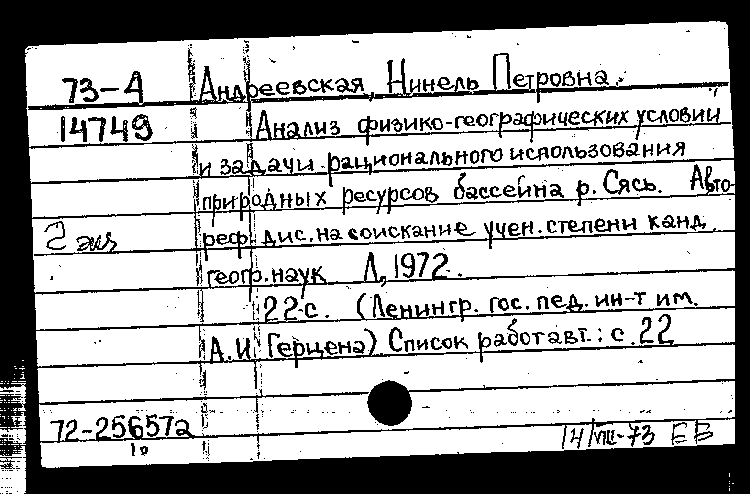 73-А Андреевская, Нинель Петровна.
14749 Анализ физико-географических условий
и задачи рационального использования
природных ресурсов бассейна р. Сясь. Авто-
2 экз реф. дис. на соискание учен. степени канд.
геогр. наук Л, 1972.
22 с. (Ленингр. гос. пед. ин-т им.
А.И. Герцена) Список работ авт.: с. 22
72-256572
14/VIII-73 ЕВ